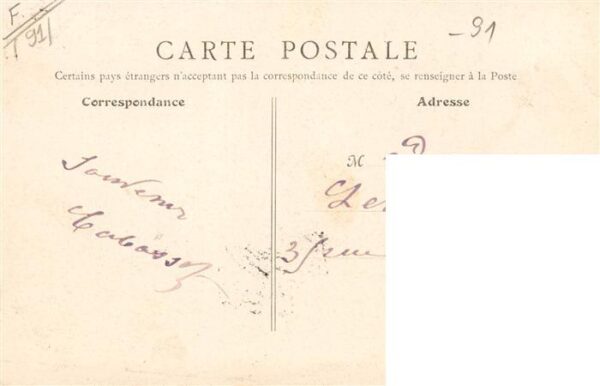 F.
(91)
-91
CARTE POSTALE
Certains pays étrangers n'acceptant pas la correspondance de ce côté, se renseigner à la Poste
Correspondance
Adresse
Souvenir
M
3 rue